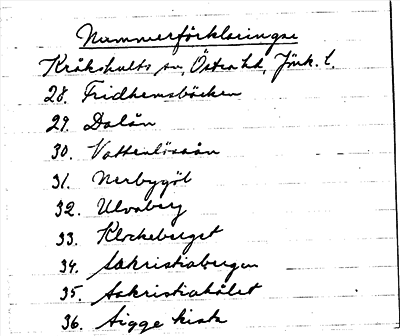 Nummerförklaringar
Kråkshults sn, Östra hd, Jönk. l.
28. Fridhemsbäcken
29. Dalån
30. Vattenlösaån
31. Nerbygöl
32. Ulvaberg
33. Klockeberget
34. Sakristiabergen
35. Sakristiahålet
36. Sigge kista